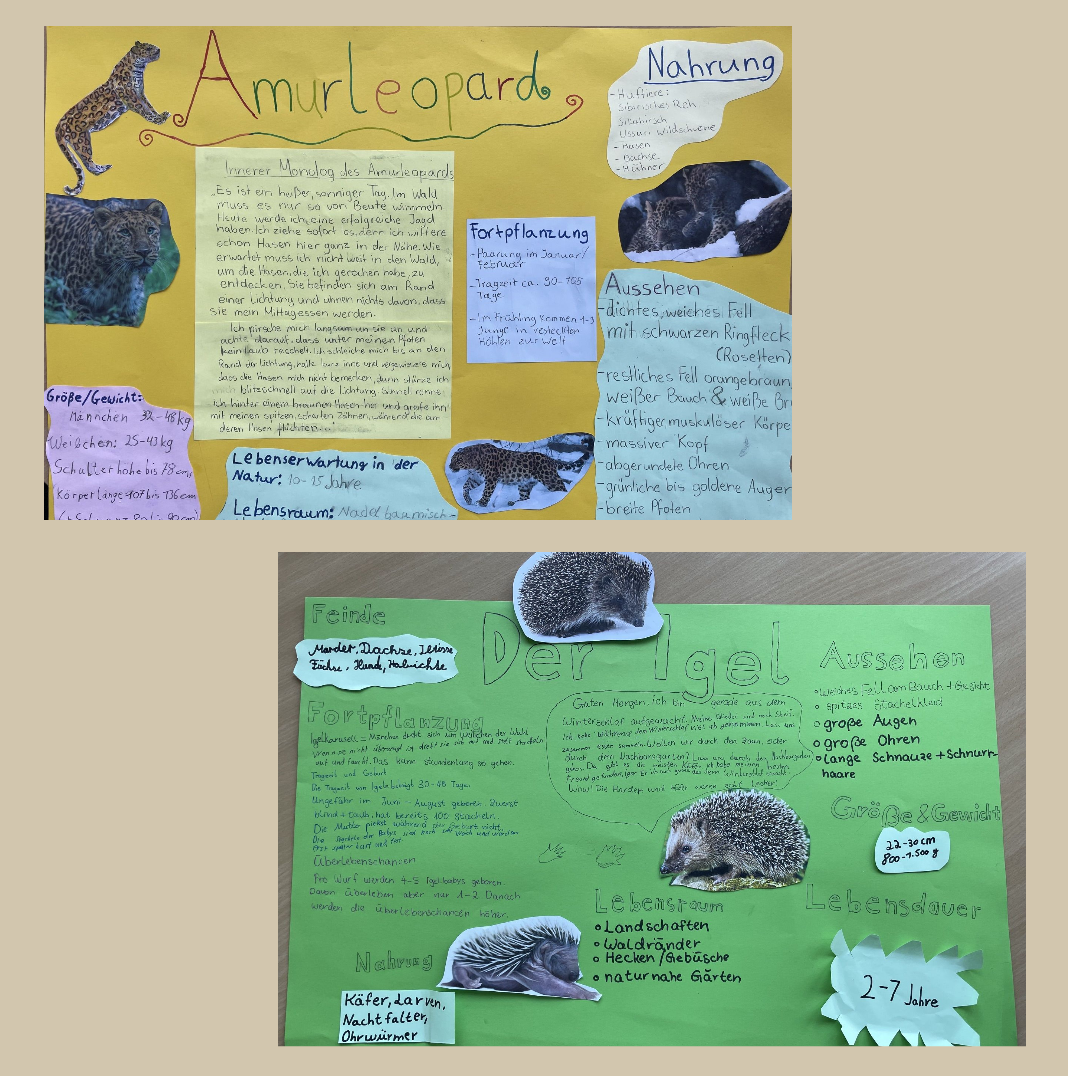 Amurleopard
Nahrung
- Huftiere:
Sibirisches Reh
Sikahirsch
Ussuri Wildschweine
- Hasen
- Dachse
- Hühner
Innerer Monolog des Amurleopards
„Es ist ein heißer, sonniger Tag. Im Wald
muss es nur so von Beute wimmeln
Heute werde ich eine erfolgreiche Jagd
haben. Ich ziehe sofort los, denn ich wittere
schon Hasen hier ganz in der Nähe. Wie
erwartet muss ich nicht weit in den Wald,
um die Hasen, die ich gerochen habe, zu
entdecken. Sie befinden sich am Rand
einer Lichtung und ahnen nichts davon, dass
sie mein Mittagessen werden.
Ich pirsche mich langsam an sie an und
achte darauf, dass unter meinen Pfoten
kein Laub raschelt. Ich schleiche mich bis an den
Rand der Lichtung, halte kurz inne und vergewissere mich,
dass die Hasen mich nicht bemerken, dann stürze ich
blitzschnell auf die Lichtung. Schnell renne
ich hinter einem braunen Hasen her und greife ihn
mit meinen spitzen, scharfen Zähnen, während die an
deren Hasen flüchten.
Fortpflanzung
- Paarung im Januar/
Februar
- Tragzeit ca. 90-105
Tage
- Im Frühling kommen 1-3
Junge in versteckten
Höhlen zur Welt
Aussehen
- dichtes, weiches Fell
mit schwarzen Ringfleck
(Rosetten)
- restliches Fell orangebraun
weißer Bauch & weiße Br
- kräftiger muskulöser Körpe
- massiver Kopf
- abgerundete Ohren
- grünliche bis goldene Augen
- breite Pfoten
Größe/Gewicht:
Männchen 32-48 kg
Weibchen: 25-43 kg
Schulterhöhe bis 78 cm
Körperlänge 107 bis 136 cm
Lebenserwartung in der
Natur: 10-15 Jahre
Lebensraum: Nadelbaummisch-
Der Igel
Feinde
Marder, Dachse, Iltisse
Füchse, Hunde, Habichte
Fortpflanzung
Igelkarussell = Männchen dreht sich um Weibchen. der Wald
Wenn sie nicht
auf und faucht. Das kann stundenlang so gehen.
Tragzeit und Geburt
Die Tragzeit von Igeln beträgt 30-48 Tage.
Ungefähr im Juni - August geboren. Zuerst
blind + taub, hat bereits 100 Stacheln.
Die Mutter piekst während der Geburt nicht.
Die Stacheln der Babys sind noch
Überlebenschancen
Pro Wurf werden 4-5 Igelbabys geboren.
Davon überleben aber nur 1-2 Danach
werden die Überlebenschancen höher.
Nahrung
Käfer, Larven,
Nachtfalter,
Ohrwürmer
Guten Morgen, ich bin gerade aus dem
Winterschlaf aufgewacht. Meine Glieder sind noch
Ich habe
zusammen Wollen wir durch den Zaun, oder
durch den Nachbarsgarten? Lass uns durch den Nachbarsgarten
gehen. Da gibt es die
Lebensraum
Landschaften
Waldränder
Hecken/Gebüsche
naturnahe Gärten
Aussehen
weiches Fell am Bauch + Gesicht
spitzes Stachelkleid
große Augen
große Ohren
lange Schnauze + Schnurr-
haare
Größe & Gewicht
22-30 cm
800-1.500 g
Lebensdauer
2-7 Jahre